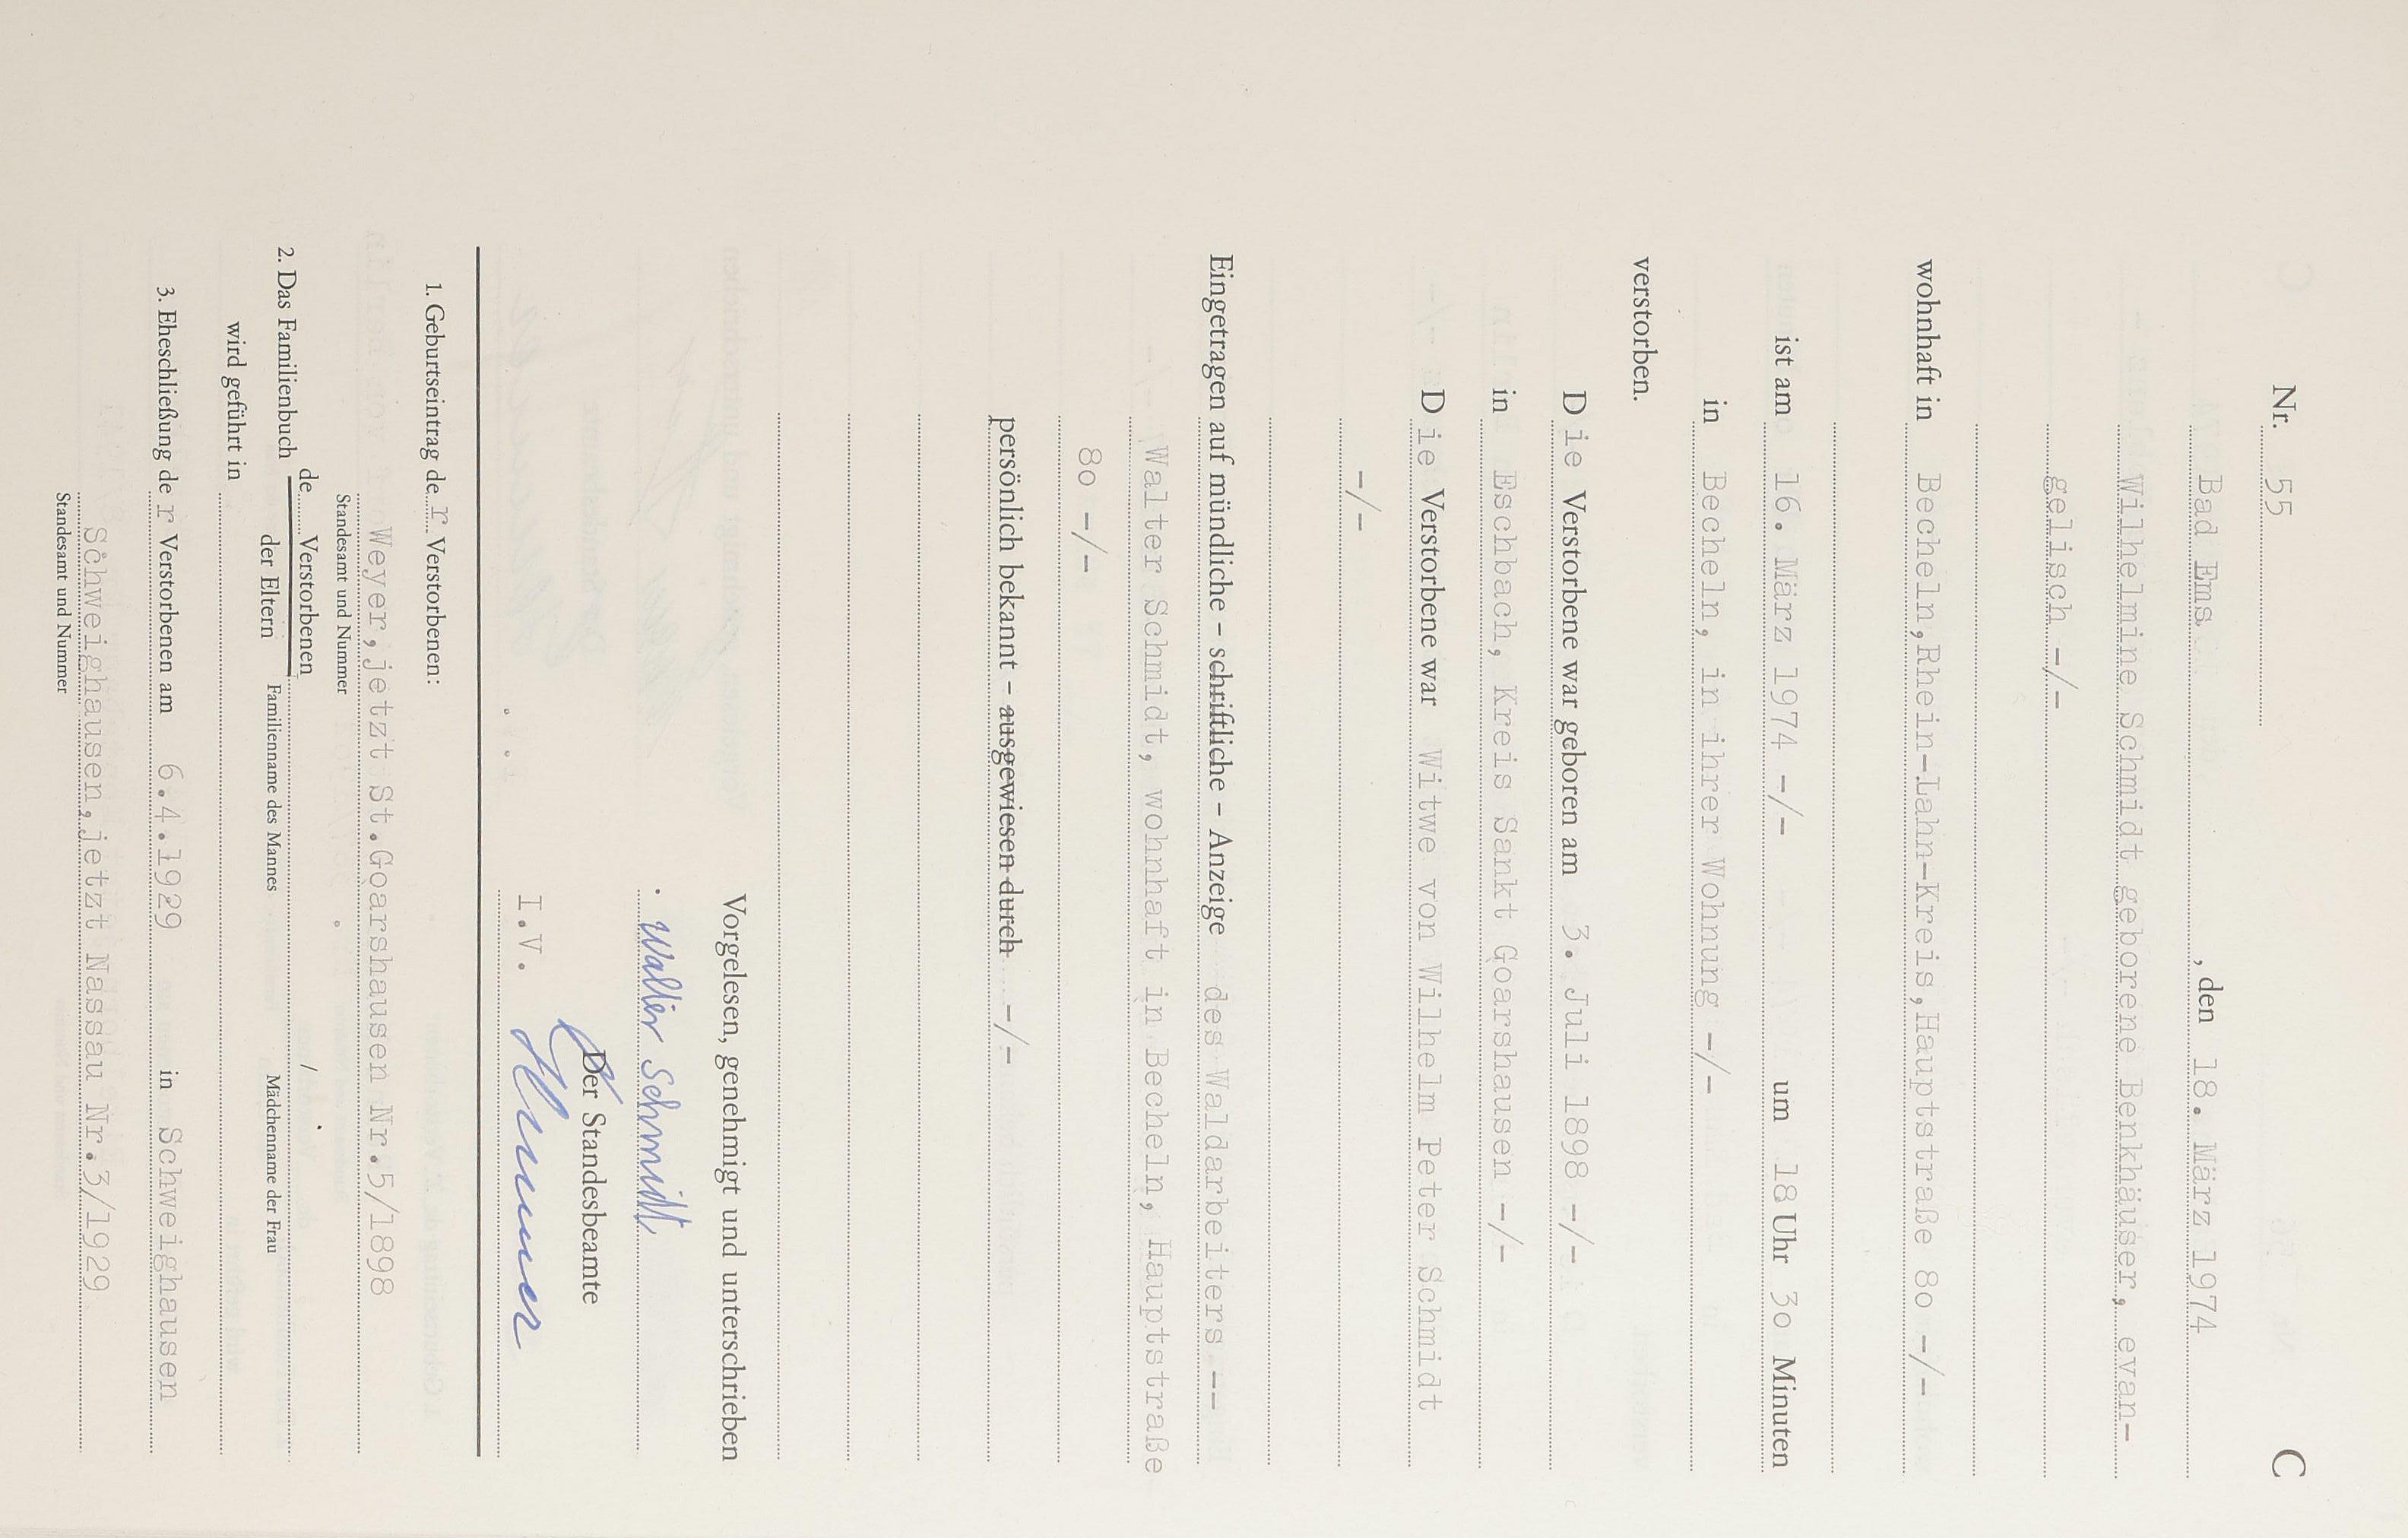 Nr. 55 C
Bad Ems, den 18. März 1974
Wilhelmine Schmidt geborene Benkhäuser, evan-
gelisch -/-
wohnhaft in Becheln,Rhein-Lahn-Kreis,Hauptstraße 80 -/-
ist am 16. März 1974 -/- um 18 Uhr 30 Minuten
in Becheln, in ihrer Wohnung -/-
verstorben.
Die Verstorbene war geboren am 3. Juli 1898 -/-
in Eschbach, Kreis Sankt Goarshausen -/-
Die Verstorbene war Witwe von Wilhelm Peter Schmidt
-/-
Eingetragen auf mündliche - schriftliche - Anzeige des Waldarbeiters --
Walter Schmidt, wohnhaft in Becheln, Hauptstraße
80 -/-
persönlich bekannt - ausgewiesen durch -/-
Vorgelesen, genehmigt und unterschrieben
Walter Schmidt
Der Standesbeamte
I.V.
1. Geburtseintrag der Verstorbenen:
Weyer,jetzt St.Goarshausen Nr.5/1898
Standesamt und Nummer
de Verstorbenen /
2. Das Familienbuch
der Eltern Familienname des Mannes Mädchenname der Frau
wird geführt in
3. Eheschließung der Verstorbenen am 6.4.1929 in Schweighausen
Schweighausen,jetzt Nassau Nr.3/1929
Standesamt und Nummer